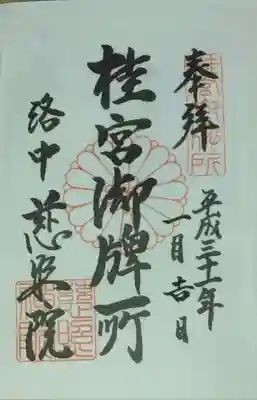 奉拝
平成三十一年
一月吉日
桂宮御牌所
洛中 慈照院